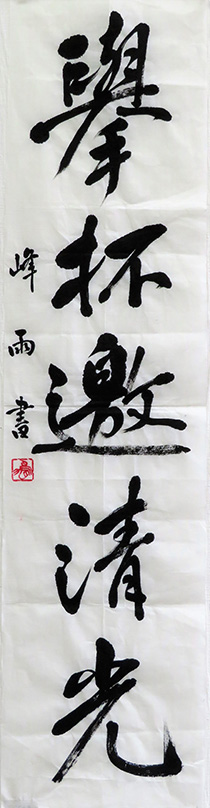 舉杯邀清光
峰雨書